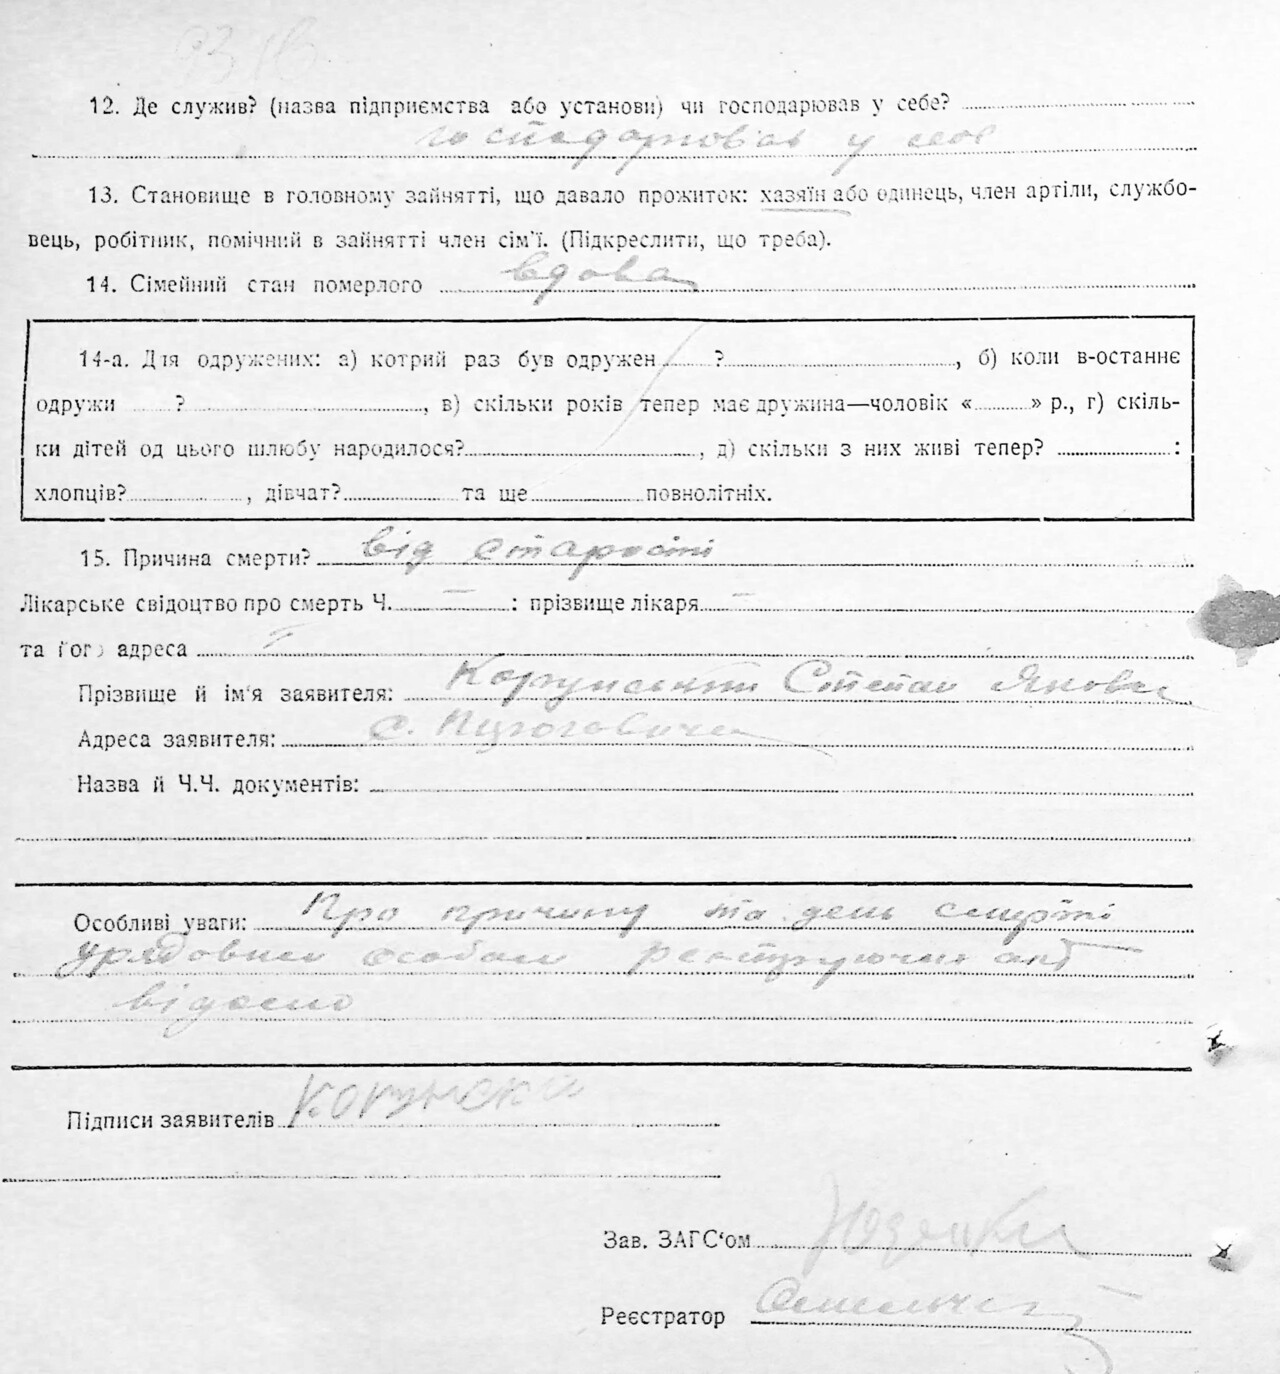 12. Де служив? (назва підприємства або установи) чи господарював у себе?
господарював у себе
13. Становище в головному зайнятті, що давало прожиток: хазяїн або одинець, член артіли, службо-
вець, робітник, помічний в зайнятті член сім'ї. (Підкреслити, що треба).
14. Сімейний стан померлого вдова
14-а. Для одружених: а) котрий раз був одружен ? , б) коли в-останнє
одружи ? , в) скільки років тепер має дружина—чоловік « » р., г) скіль-
ки дітей од цього шлюбу народилося? , д) скільки з них живі тепер? :
хлопців? , дівчат? та ще повнолітніх.
15. Причина смерти? від старости
Лікарське свідоцтво про смерть Ч. — : прізвище лікаря —
та його адреса
Прізвище й ім'я заявителя: Корчунський Степан Якович
Адреса заявителя: с.
Назва й Ч.Ч. документів:
Особливі уваги: Про причину та день смерті
урядовим особам акт
відомо
Підписи заявителів
Зав. ЗАГС‘ом
Реєстратор